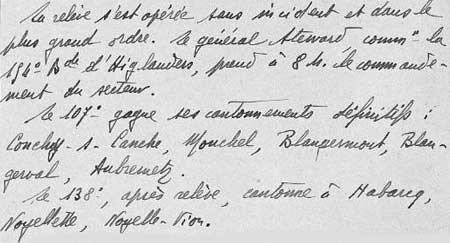 La relève s'est opérée sans incident et dans le
plus grand ordre. Le général Steward, commt la
154e Bde d'Higlanders, prend à 8 h. le commande-
ment du secteur.
Le 107e gagne ses cantonnements définitifs :
Conchy-s-Canche, Monchel, Blangermont, Blan-
gerval, Aubrometz.
Le 138e, après relève, cantonne à Habarcq,
Noyellette, Noyelle-Vion.